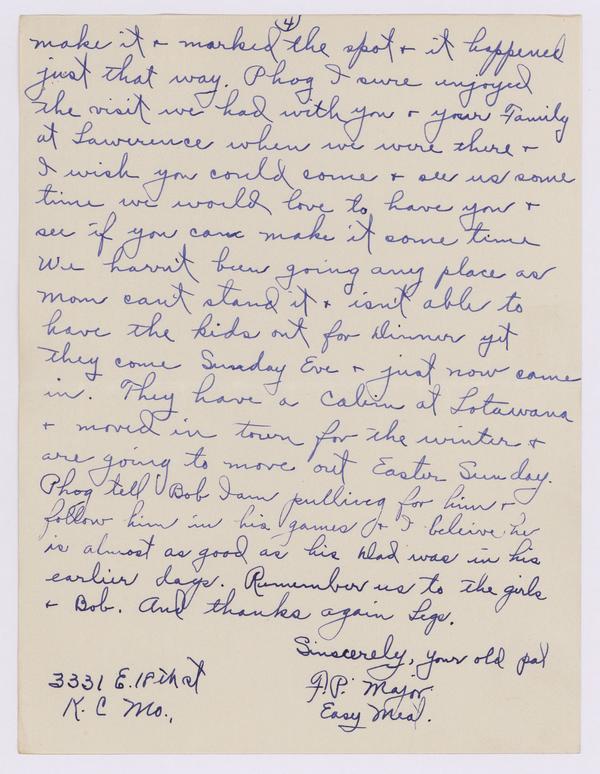 4
make it + marked the spot + it happened
just that way. Phog I sure enjoyed
the visit we had with you + your Family
at Lawerence when we were there +
I wish you could some + see us some
time we would love to have you +
see if you can make it some time
We havn't been going any place as
Mom can't stand it + isn't able to
have the kids out for Dinner yet
they come Sunday Eve + just now came
in. They have a Cabin at Lotawana
+ moved in town for the winter +
are going to move out Easter Sunday.
Phog tell Bob I am pulling for him +
follow him in his games + I beleive he
is almost as good as his Dad was in his
earlier days. Remember us to the girls
+ Bob. And thanks again Legs.
Sinscerely, your old pal
F.P. Major
Easy Meal.
3331 E. 18th st
K. C Mo.,